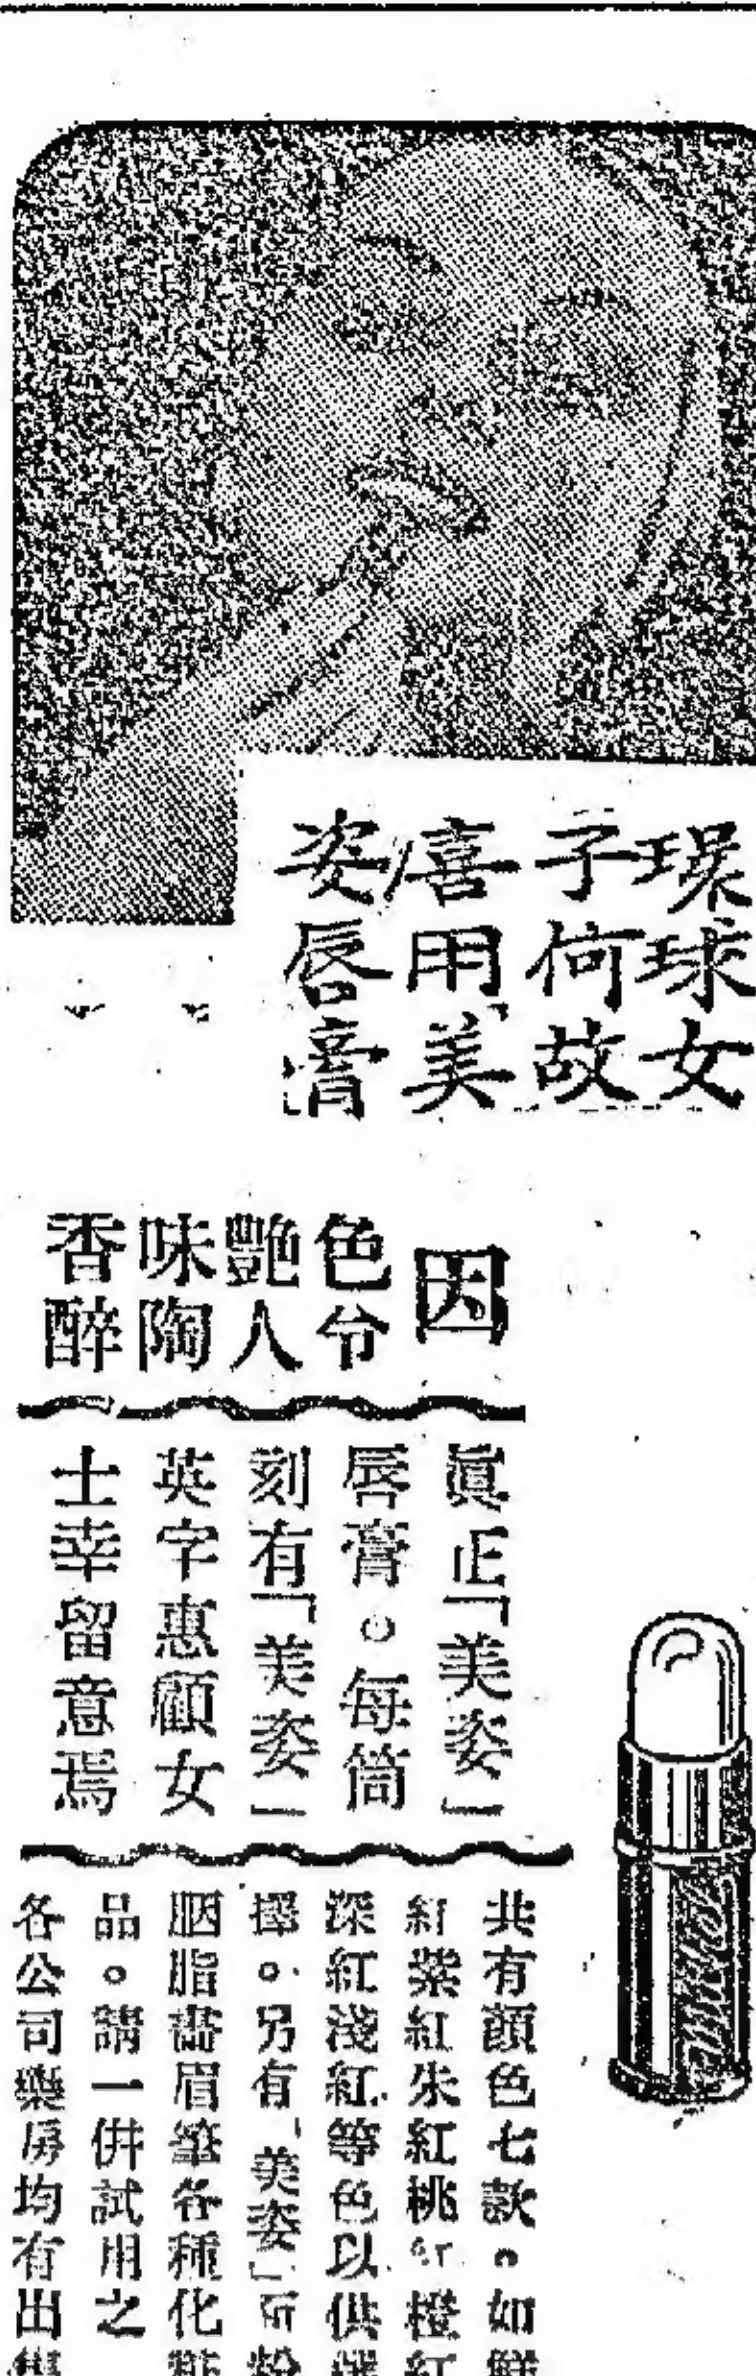 環球女
子何故
喜用美
姿唇膏
因
色令
艷人
味陶
香醉
眞正「美姿」
唇膏。每筒
刻有「美姿」
英字惠顧女
士幸留意焉
共有顏色七款。如鮮
紅紫紅朱紅桃紅橙紅
深紅淺紅等色以供選
擇。另有「美姿」面粉
胭脂畵眉筆各種化粧
品。請一併試用之
各公司藥房均有出售